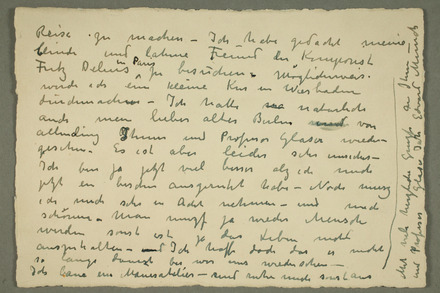 Reise zu machen – Ich habe gedacht meine
blinde und lahme Freund den Komponist
Fritz Delius in Paris zu besuchen – Möglicherweise
würde ich eine kleine Kur in Wiesbaden
durchmachen – Ich hatte natürlich
auch mein lieber altes Berlin und vor
allerding Ihnen und Professor Glaser wieder
gesehen. Es ist aber leider sehr unsicher –
Ich bin ja jetzt viel besser als ich mich
jetzt ein bischen ausgeruht habe – Noch muss
ich mich sehr in Acht nehmen – und mich
schonen – Man muss ja wieder Mensch
werden sonst ist ja das Leben nicht
auszuhalten – und Ich hoffe doch das es nicht
so lange dauert bis wir uns wiedersehen –
Ich baue ein Winteratelier – und ruhe mich sonst aus
Mit viele herzliche Grüsse an Ihnen
und Professor Glaser Ihr Edvard Munch